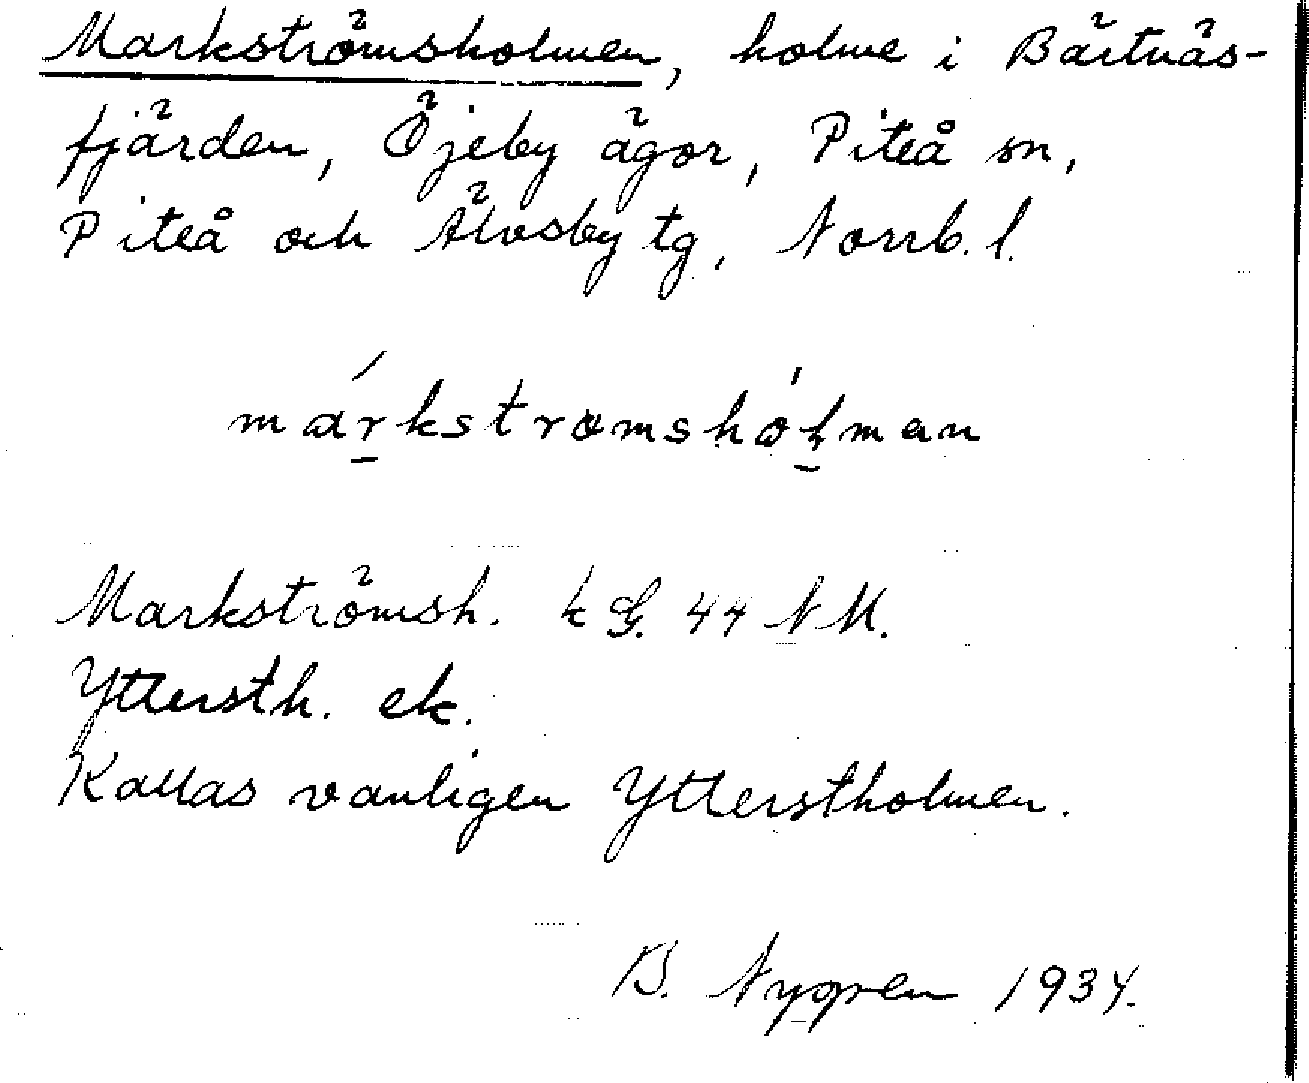 Markströmsholmen, holme i Bärtnäs-
fjärden, Öjeby ägor, Piteå sn,
Piteå och Älvsby tg, Norrb. l.
márkstromshólman
Markströmsh. k G. 44 N M.
Yttersth. ek.
Kallas vanligen Ytterstholmen.
B. Nygren 1934.